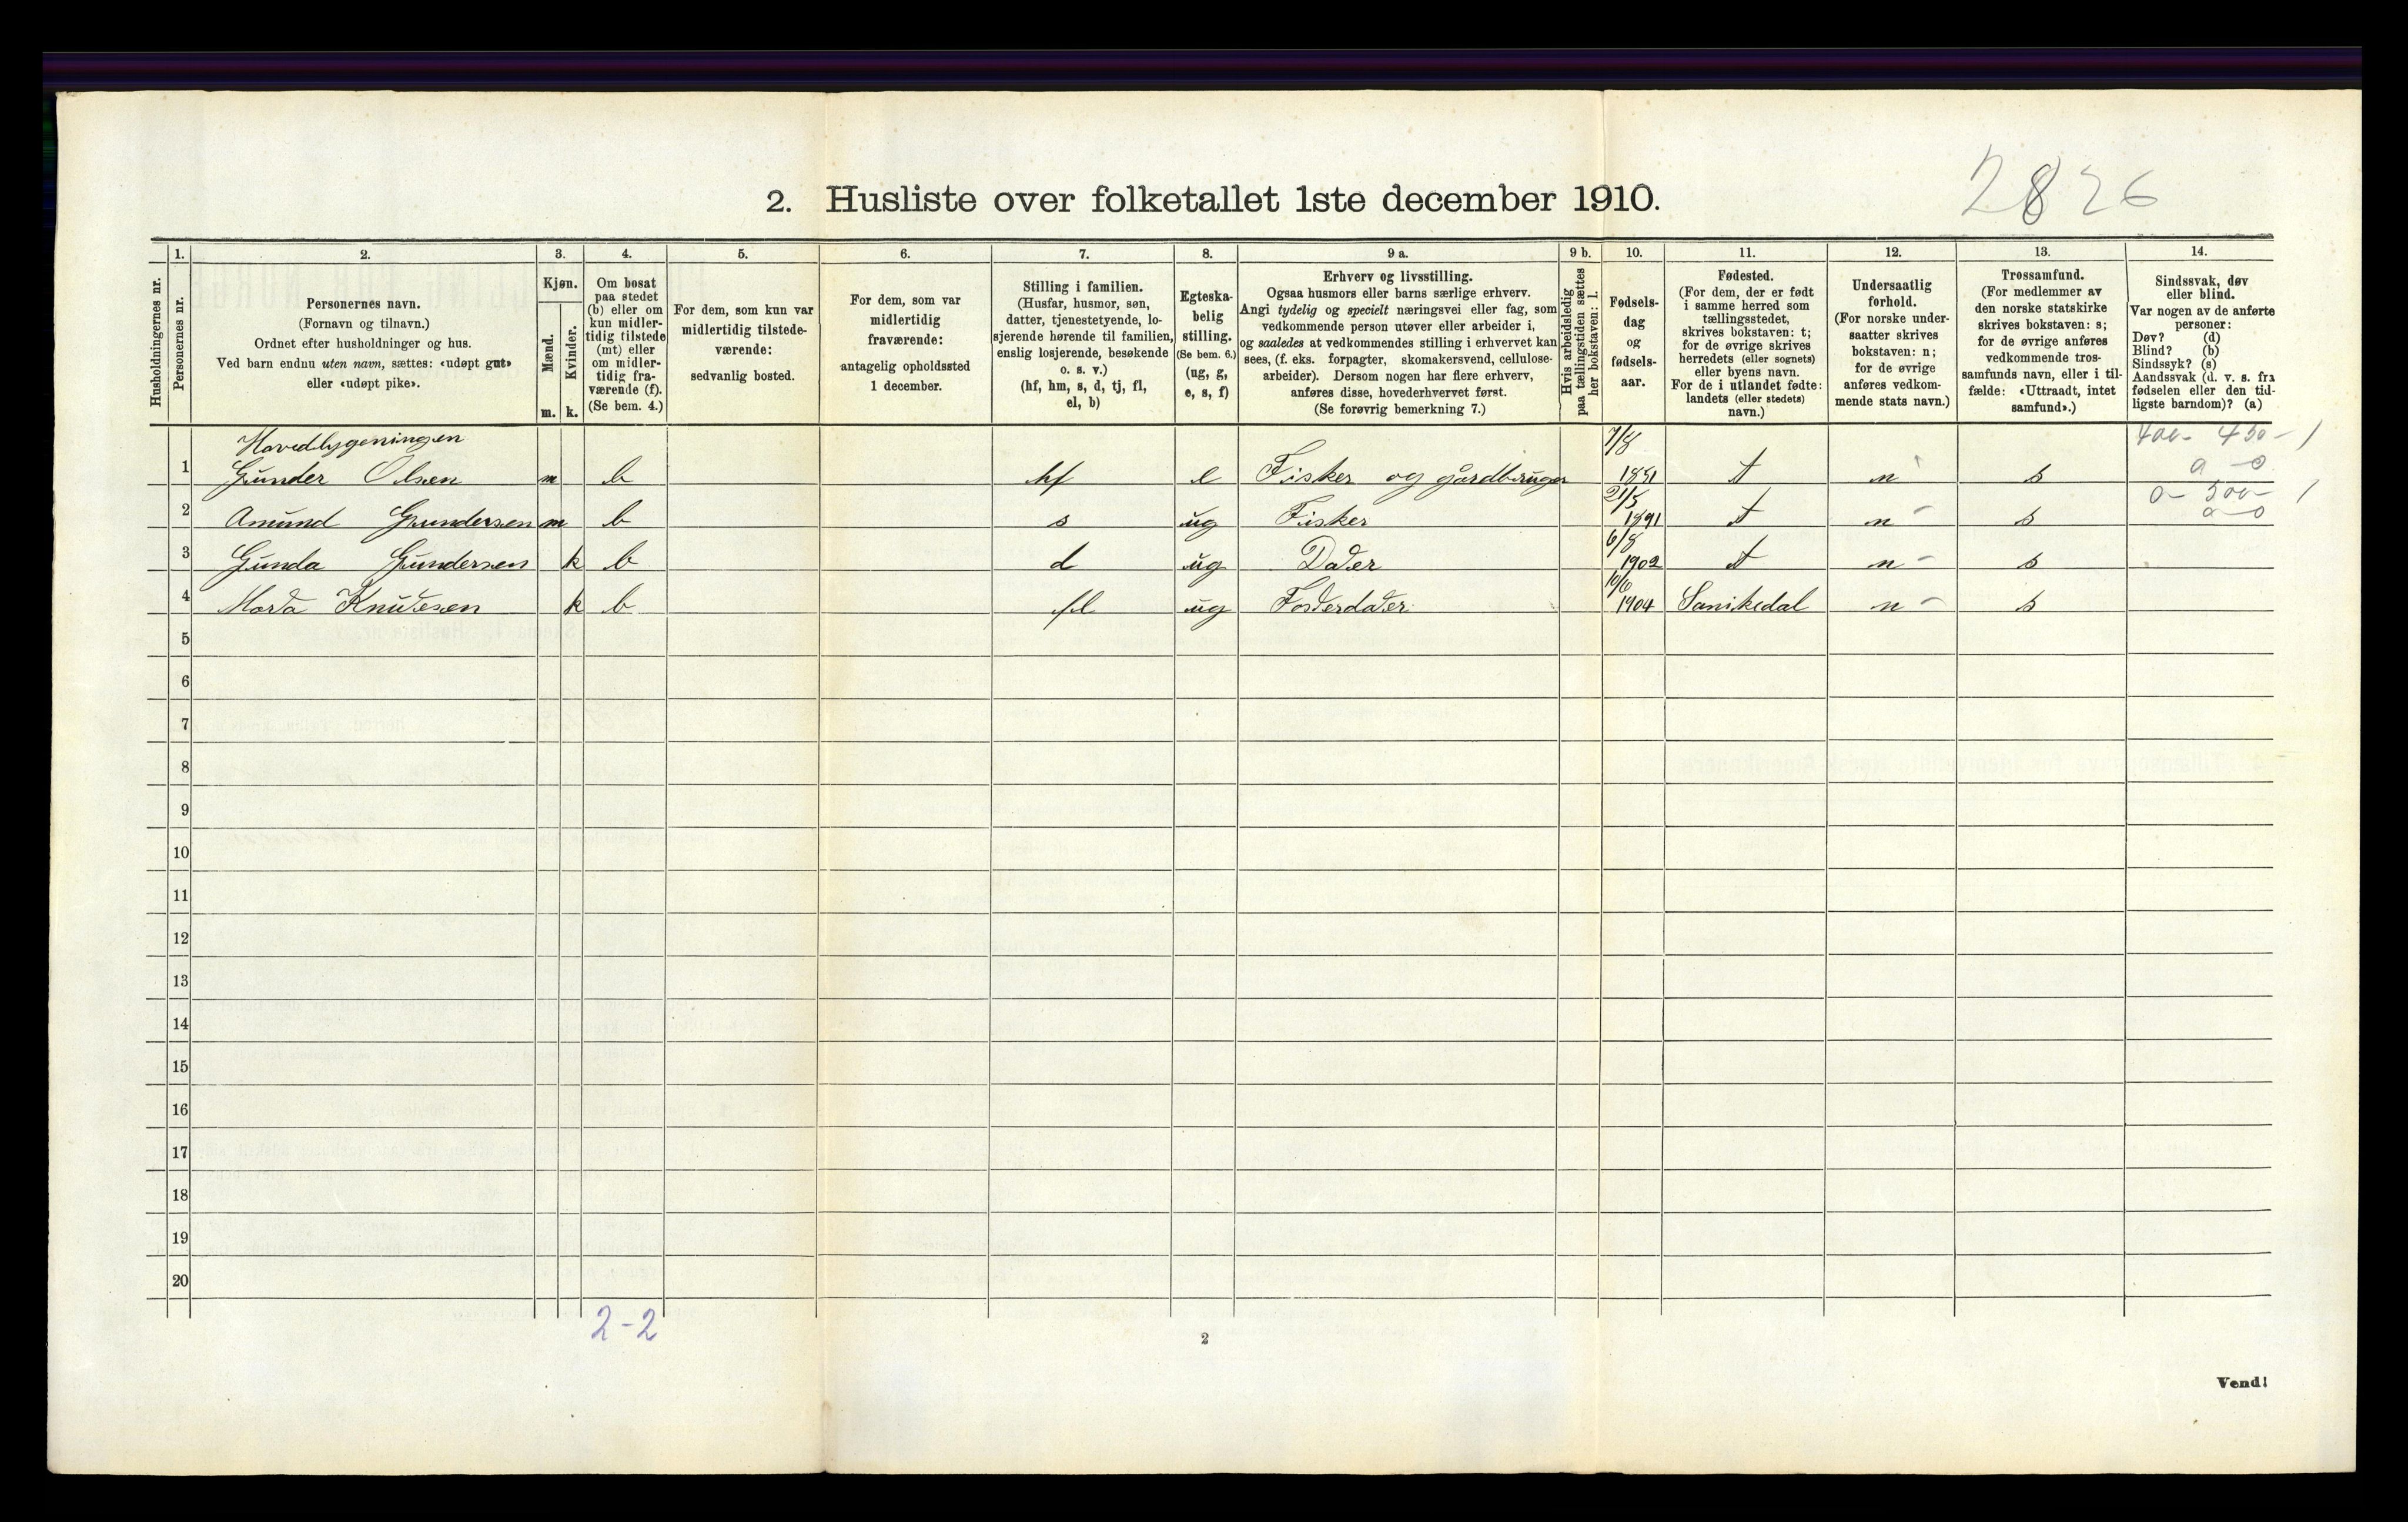 2. Husliste over folketallet 1ste december 1910.
2826
Husholdningernes nr.
1.
Personernes nr.
2.
Personernes navn.
(Fornavn og tilnavn.)
Ordnet efter husholdninger og hus.
Ved barn endnu uten navn, sættes: «udøpt gut»
eller «udøpt pike».
3.
Kjøn.
Mænd.
Kvinder.
m. k.
4.
Om bosat
paa stedet
(b) eller om
kun midler-
tidig tilstede
(mt) eller
om midler-
tidig fra-
værende (f).
(Se bem. 4.)
5.
For dem, som kun var
midlertidig tilstede-
værende:
sedvanlig bosted.
6.
For dem, som var
midlertidig
fraværende:
antagelig opholdssted
1 december.
7.
Stilling i familien.
(Husfar, husmor, søn,
datter, tjenestetyende, lo-
sjerende hørende til familien,
enslig losjerende, besøkende
o. s. v.)
(hf, hm, s, d, tj, fl,
el, b)
8.
Egteska-
belig
stilling.
(Se bem. 6.)
(ug, g,
e, s, f)
9 a.
Erhverv og livsstilling.
Ogsaa husmors eller barns særlige erhverv.
Angi tydelig og specielt næringsvei eller fag, som
vedkommende person utøver eller arbeider i,
og saaledes at vedkommendes stilling i erhvervet kan
sees, (f. eks. forpagter, skomakersvend, cellulose-
arbeider). Dersom nogen har flere erhverv,
anføres disse, hovederhvervet først.
(Se forøvrig bemerkning 7.)
9 b.
Hvis arbeidsledig
paa tællingstiden sættes
her bokstaven: l.
10.
Fødsels-
dag
og
fødsels-
aar.
11.
Fødested.
(For dem, der er født
i samme herred som
tællingsstedet,
skrives bokstaven: t;
for de øvrige skrives
herredets (eller sognets)
eller byens navn.
For de i utlandet fødte:
landets (eller stedets)
navn.)
12.
Undersaatlig
forhold.
(For norske under-
saatter skrives
bokstaven: n;
for de øvrige
anføres vedkom-
mende stats navn.)
13.
Trossamfund.
(For medlemmer av
den norske statskirke
skrives bokstaven: s;
for de øvrige anføres
vedkommende tros-
samfunds navn, eller i til-
fælde: «Uttraadt, intet
samfund».)
14.
Sindssvak, døv
eller blind.
Var nogen av de anførte
personer:
Døv? (d)
Blind? (b)
Sindssyk? (s)
Aandssvak (d. v. s. fra
fødselen eller den tid-
ligste barndom)? (a)
Hovedbygeningen
1 Gunder Olsen m b hf e Fisker og gårdbruger 7/8 1851 t n s 400- 450- 1
a 0
2 Amund Gundersen m b s ug Fisker 21/5 1891 t n - s 0- 500- 1
a 0
3 Gunda Gundersen k b d ug Dater 6/8 1902 t n - s
4 Marta Knutesen k b fl ug Fosterdater 1904 Sanikedal n - s
5
6
7
8
9
10
11
12
13
14
15
16
17
18
19
20
2-2
2
Vend!